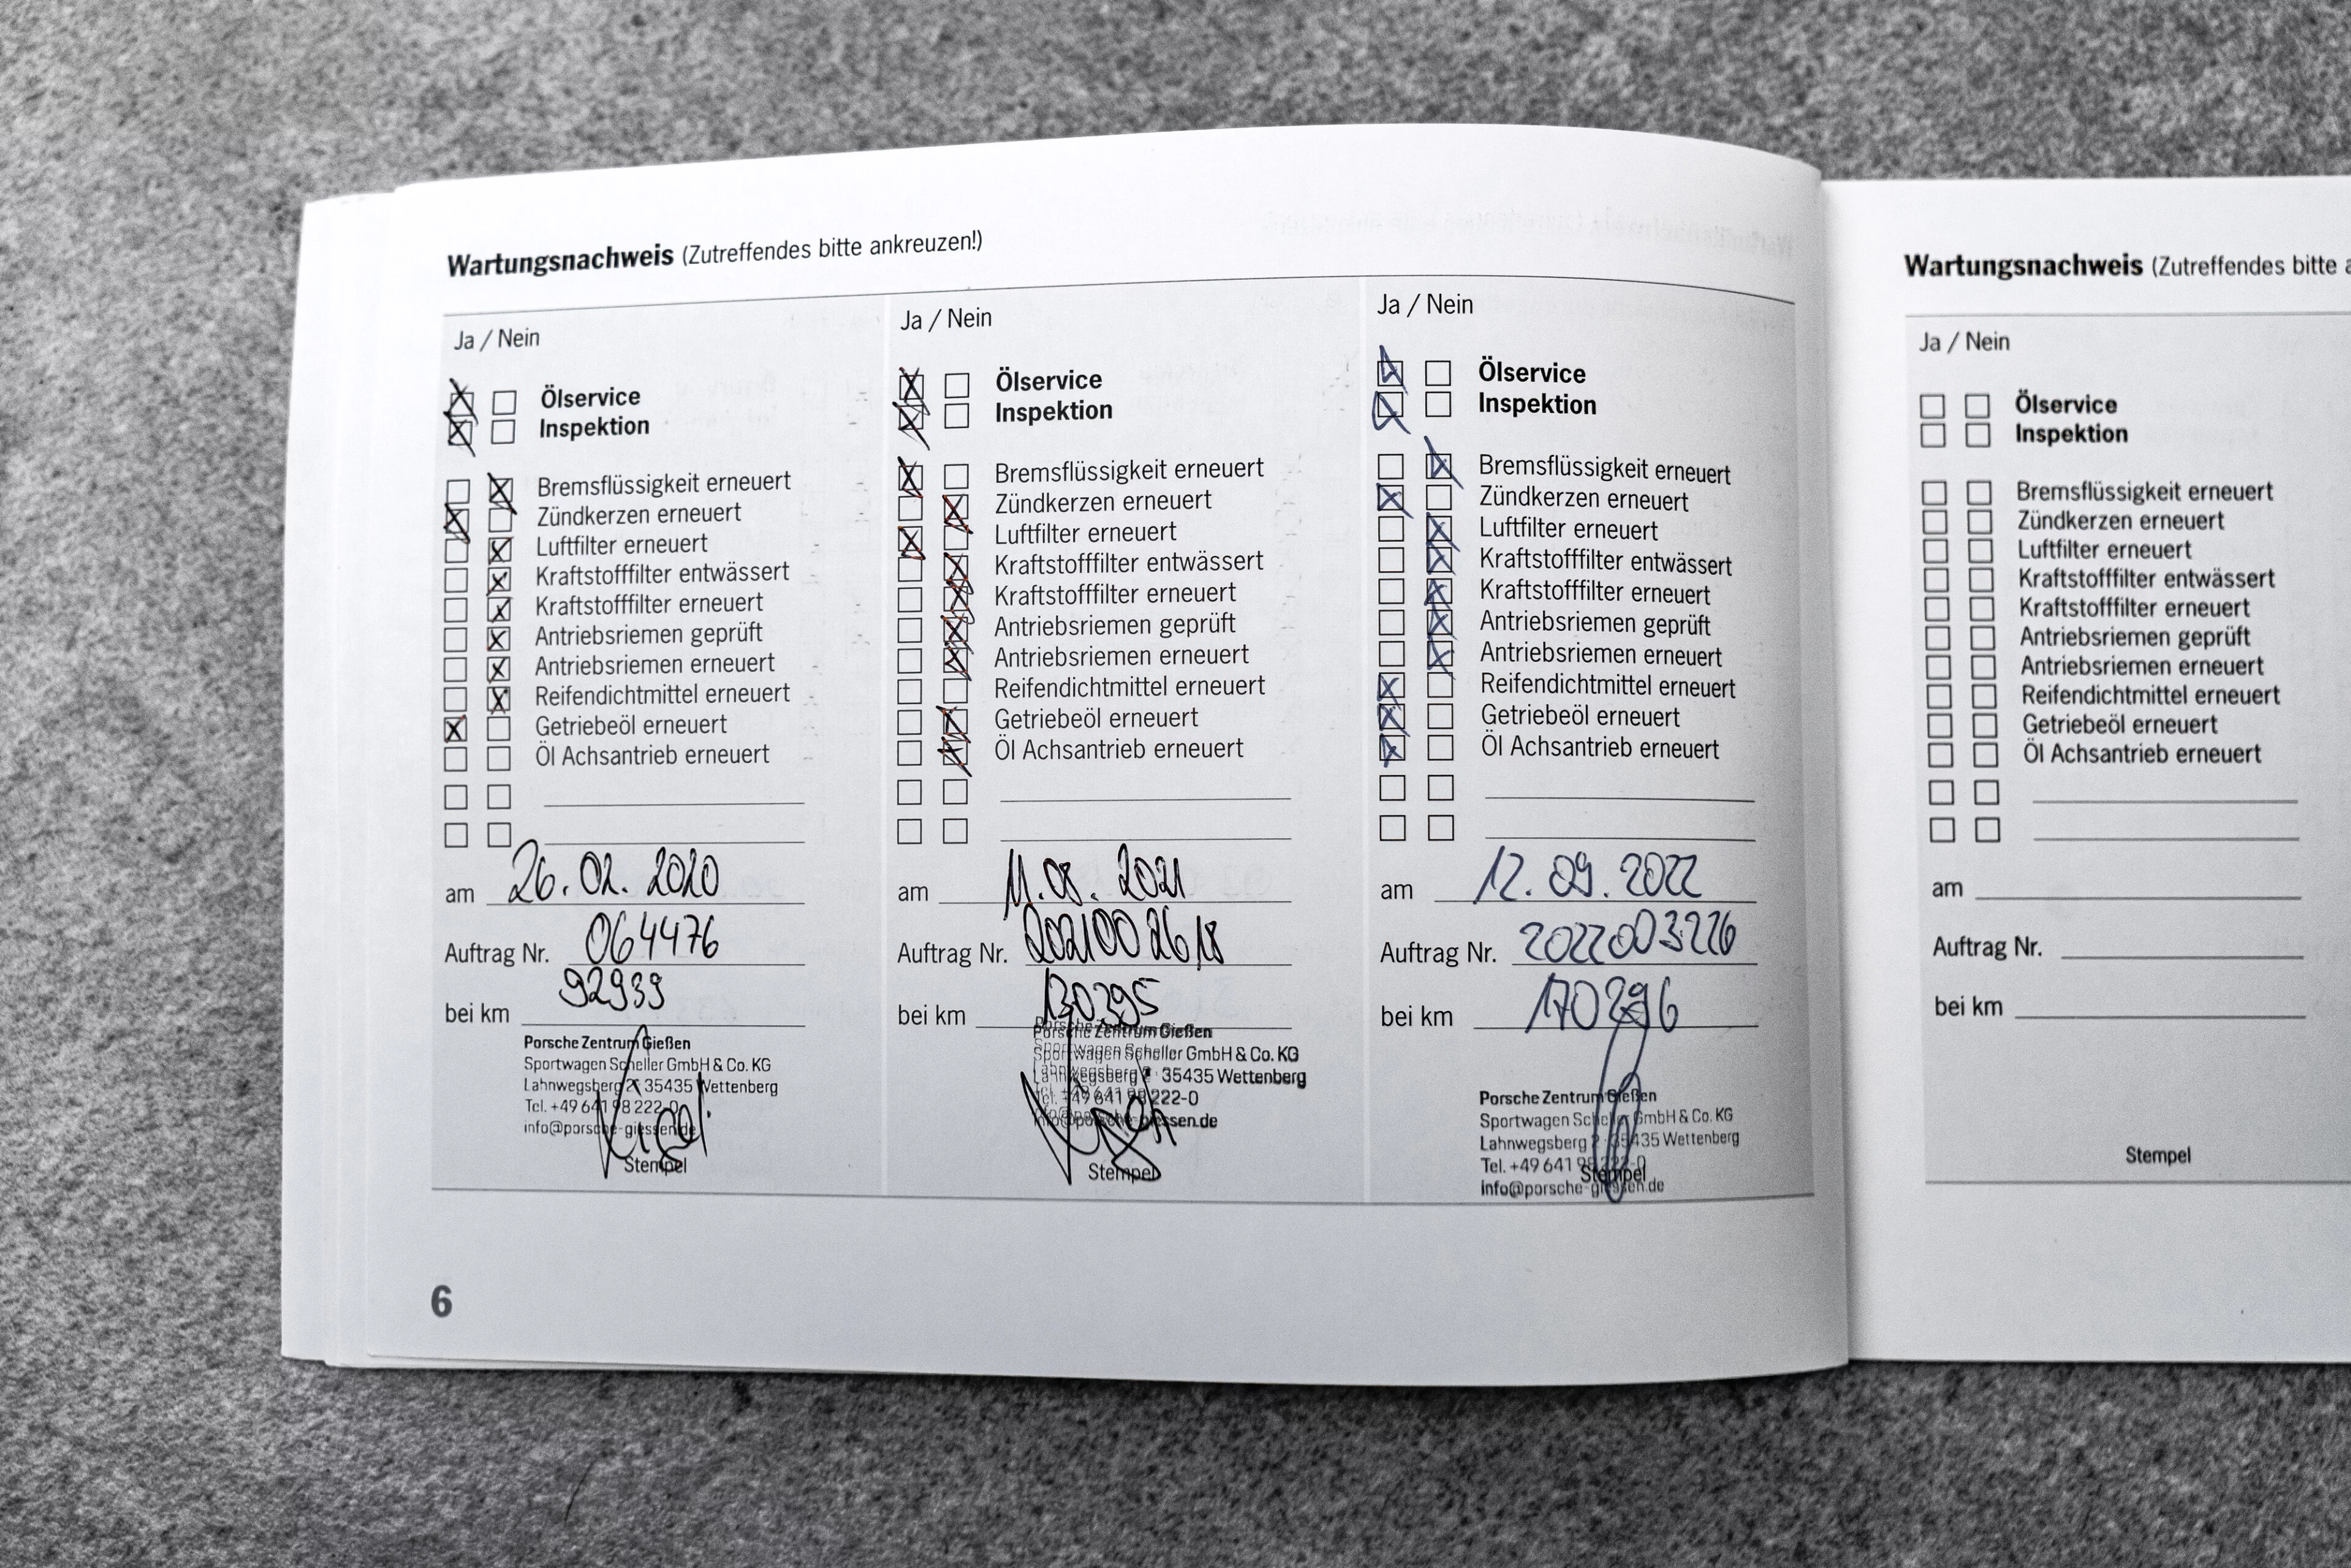 Wartungsnachweis (Zutreffendes bitte ankreuzen!)
Ja / Nein
Ölservice
Inspektion
Bremsflüssigkeit erneuert
Zündkerzen erneuert
Luftfilter erneuert
Kraftstofffilter entwässert
Kraftstofffilter erneuert
Antriebsriemen geprüft
Antriebsriemen erneuert
Reifendichtmittel erneuert
Getriebeöl erneuert
Öl Achsantrieb erneuert
am 26.02.2020
Auftrag Nr. 064476
bei km 92939
Porsche Zentrum Gießen
Sportwagen Scheller GmbH & Co. KG
Lahnwegsberg 2 · 35435 Wettenberg
Tel. +49 641 98 222-0
info@porsche-giessen.de
Stempel
Ja / Nein
Ölservice
Inspektion
Bremsflüssigkeit erneuert
Zündkerzen erneuert
Luftfilter erneuert
Kraftstofffilter entwässert
Kraftstofffilter erneuert
Antriebsriemen geprüft
Antriebsriemen erneuert
Reifendichtmittel erneuert
Getriebeöl erneuert
Öl Achsantrieb erneuert
am 11.08.2021
Auftrag Nr. 2021002618
bei km 130395
Porsche Zentrum Gießen
Sportwagen Scheller GmbH & Co. KG
Lahnwegsberg 2 · 35435 Wettenberg
Tel. +49 641 98 222-0
info@porsche-giessen.de
Stempel
Ja / Nein
Ölservice
Inspektion
Bremsflüssigkeit erneuert
Zündkerzen erneuert
Luftfilter erneuert
Kraftstofffilter entwässert
Kraftstofffilter erneuert
Antriebsriemen geprüft
Antriebsriemen erneuert
Reifendichtmittel erneuert
Getriebeöl erneuert
Öl Achsantrieb erneuert
am 12.09.2022
Auftrag Nr. 2022003226
bei km 170296
Porsche Zentrum Gießen
Sportwagen Scheller GmbH & Co. KG
Lahnwegsberg 2 · 35435 Wettenberg
Tel. +49 641 98 222-0
Stempel
info@porsche-giessen.de
6
Wartungsnachweis (Zutreffendes bitte
Ja / Nein
Ölservice
Inspektion
Bremsflüssigkeit erneuert
Zündkerzen erneuert
Luftfilter erneuert
Kraftstofffilter entwässert
Kraftstofffilter erneuert
Antriebsriemen geprüft
Antriebsriemen erneuert
Reifendichtmittel erneuert
Getriebeöl erneuert
Öl Achsantrieb erneuert
am
Auftrag Nr.
bei km
Stempel